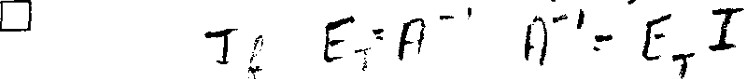 If E_T = A^{-1} A^{-1} = E_T I